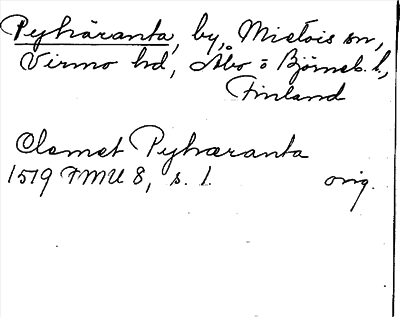 Pyhäranta, by, Mietois sn,
Virmo hd, Åbo o Björneb. l.,
Finland
Clemet Pyhæranta
1519 FMU 8, s. 1. orig.